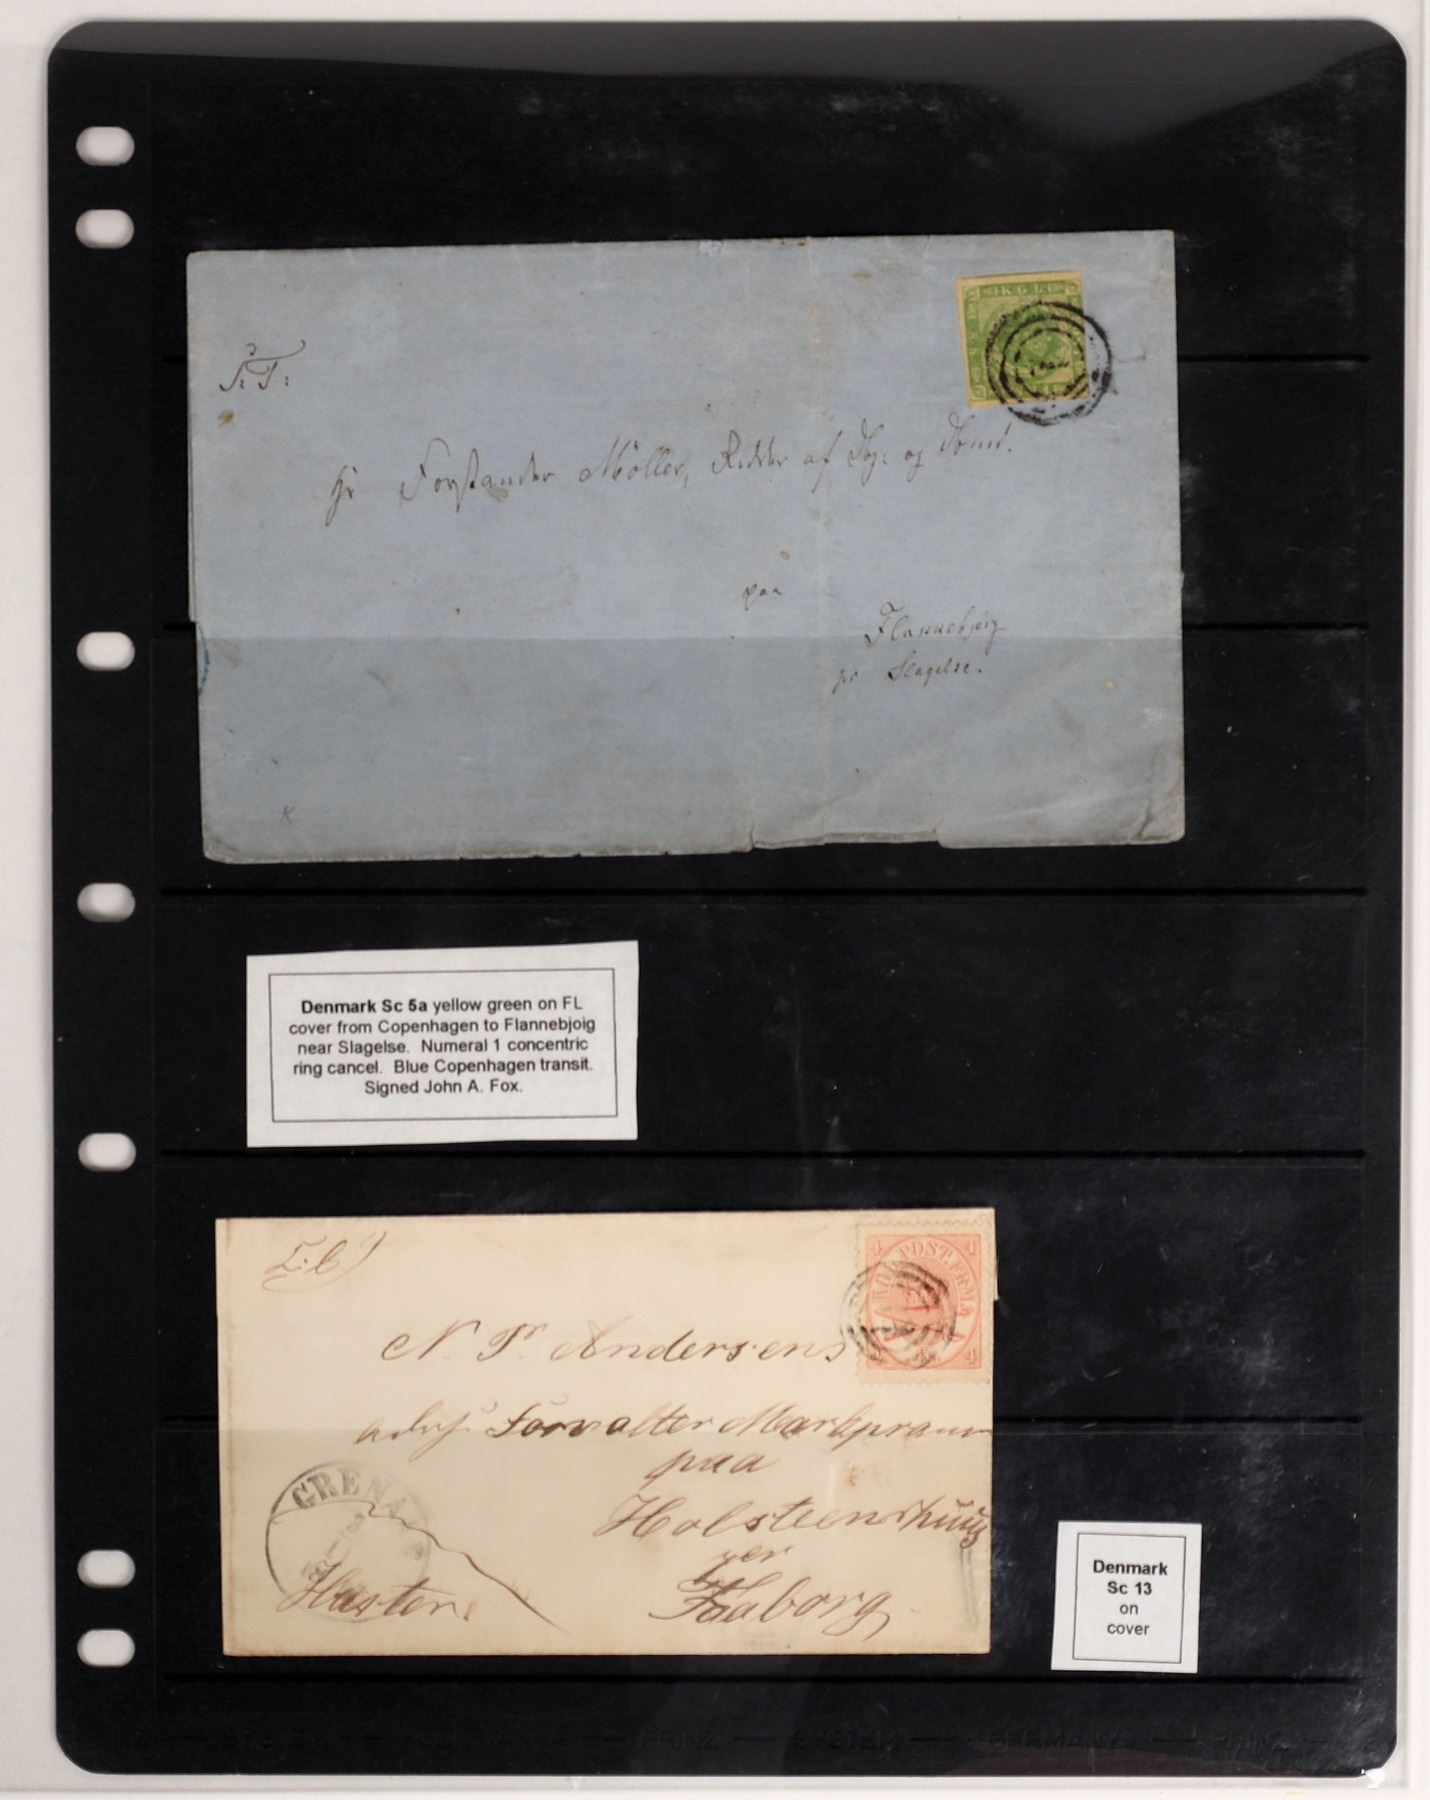 KGL
S.T.
Hr Forstander Möller, Ridder af Dbg: og Dbmd.
paa
Flannebjerg
pr Slagelse.
K
Denmark Sc 5a yellow green on FL
cover from Copenhagen to Flannebjoig
near Slagelse. Numeral 1 concentric
ring cancel. Blue Copenhagen transit.
Signed John A. Fox.
4 4
KGL POST FRM
4
N. Pr Andersens
Forvalter Markprams
paa
Holsteenshuus
per
Faaborg
GRENAA
Haster.
Denmark
Sc 13
on
cover
PRINZ — SYSTEM — GERMANY — PRINZ